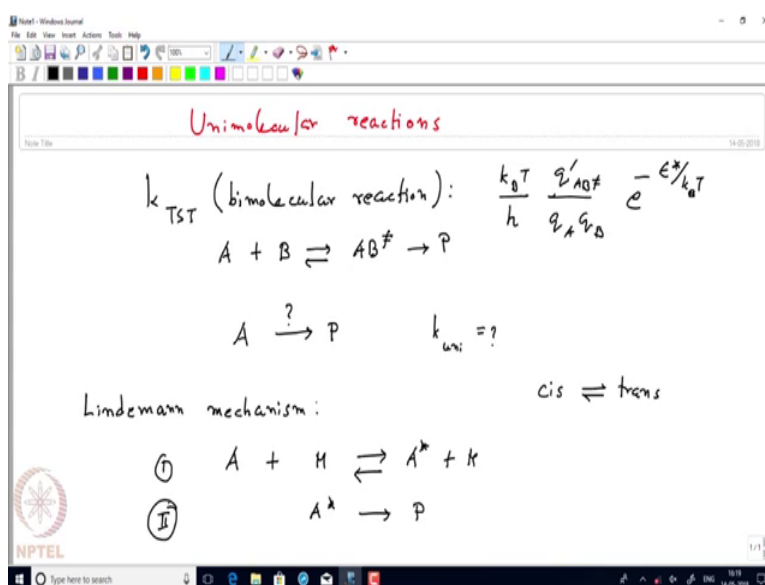 Note1 - Windows Journal
File Edit View Insert Actions Tools Help
100%
B I
Unimolecular reactions
Note Title
14-05-2018
k_TST (bimolecular reaction): k_B T / h q'_AB≠ / q_A q_B e^(-ε*/k_B T)
A + B ⇌ AB≠ → P
A →(?) P k_uni = ?
cis ⇌ trans
Lindemann mechanism:
(I) A + M ⇌ A* + M
(II) A* → P
NPTEL
1/1
Type here to search
ENG
16:19
14-05-2018